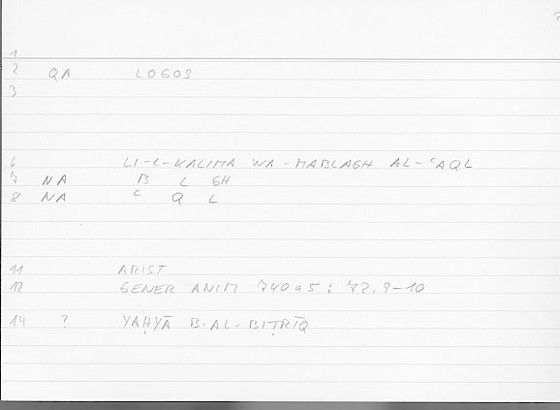 1
2 QA LOGOS
3
6 LI-L-KALIMA WA-MABLAGH AL-ʿAQL
7 NA B L GH
8 NA ʿ Q L
11 ARIST
12 GENER ANIM 740a5 : 72.9-10
14 ? YAḤYĀ B. AL-BIṬRĪQ